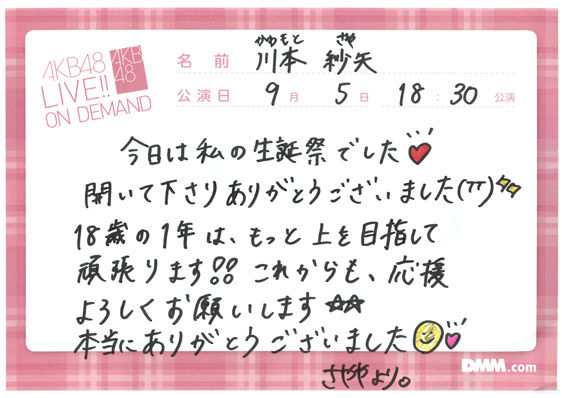 AKB48
LIVE!!
ON DEMAND
AKB
48
かわもと さや
名前 川本 紗矢
公演日 9月 5日 18:30 公演
今日は私の生誕祭でした
開いて下さりありがとうございました(TT)
18歳の1年は、もっと上を目指して
頑張ります!! これからも、応援
よろしくお願いします☆☆
本当にありがとうございました
さややより。
DMM.com